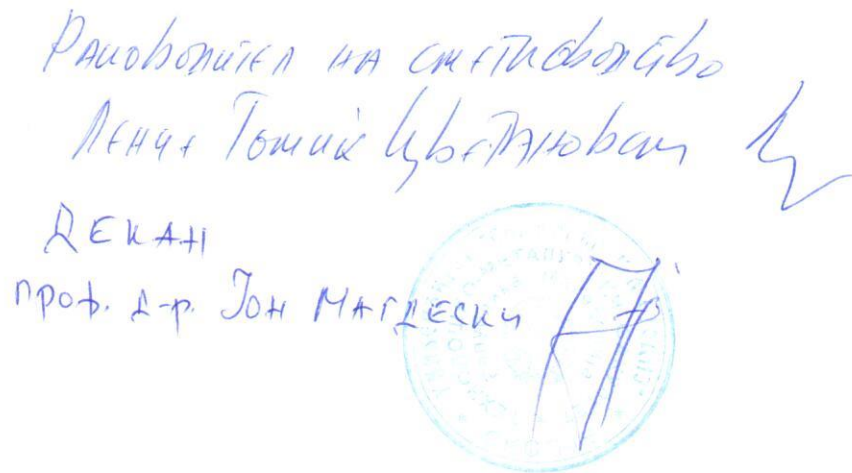 Раководител на сметководство
Ленче Томиќ Цветановска
ДЕКАН
проф. д-р. Јон Магдески